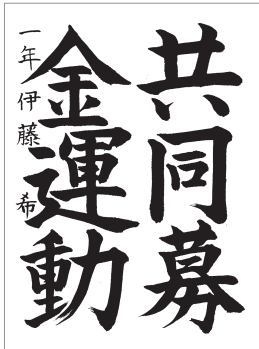 共同募
金運動
一年伊藤希